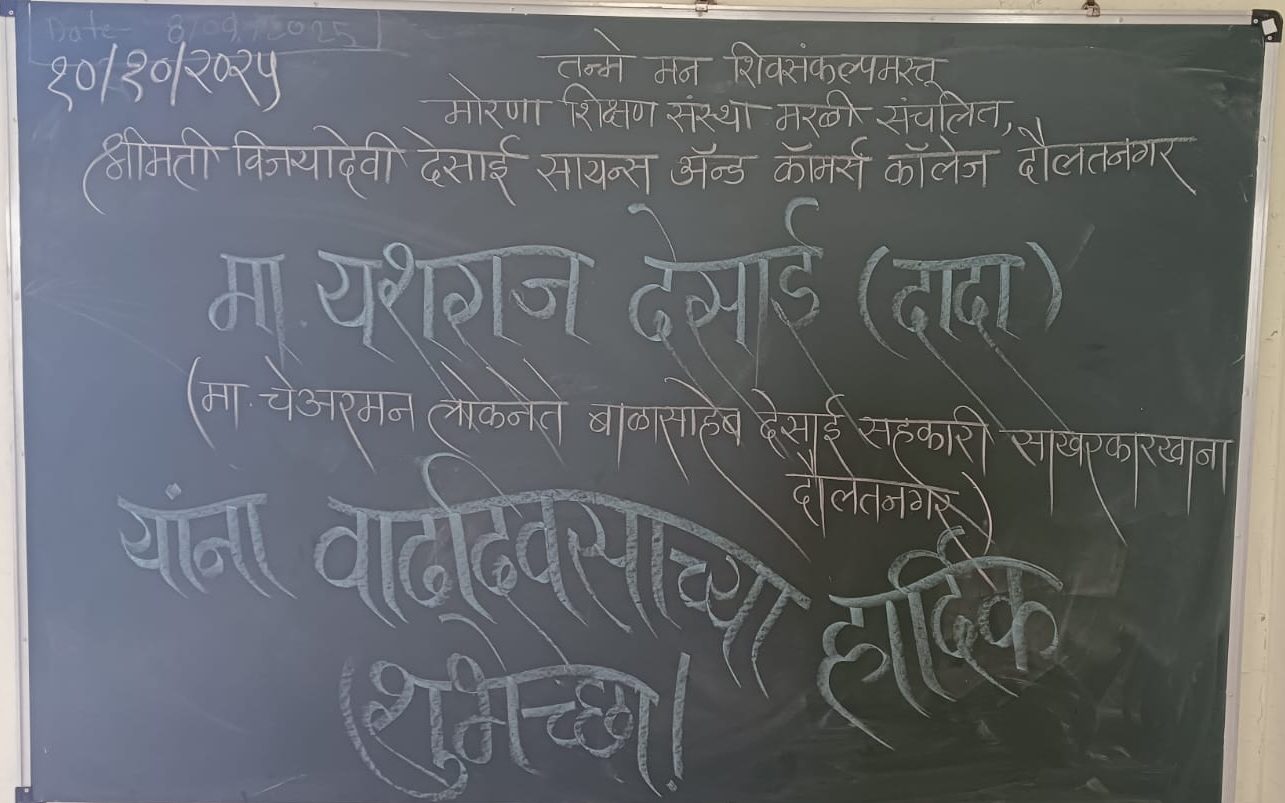 Date- 8/09/2025
१०/१०/२०२५
तन्मे मन शिवसंकल्पमस्तू
मोरणा शिक्षण संस्था मरळी संचलित,
श्रीमती विजयादेवी देसाई सायन्स ॲन्ड कॉमर्स कॉलेज दौलतनगर
मा. यशराज देसाई (दादा)
(मा. चेअरमन लोकनेते बाळासाहेब देसाई सहकारी साखरकारखाना
दौलतनगर)
यांना वाढदिवसाच्या हार्दिक
शुभेच्छा!